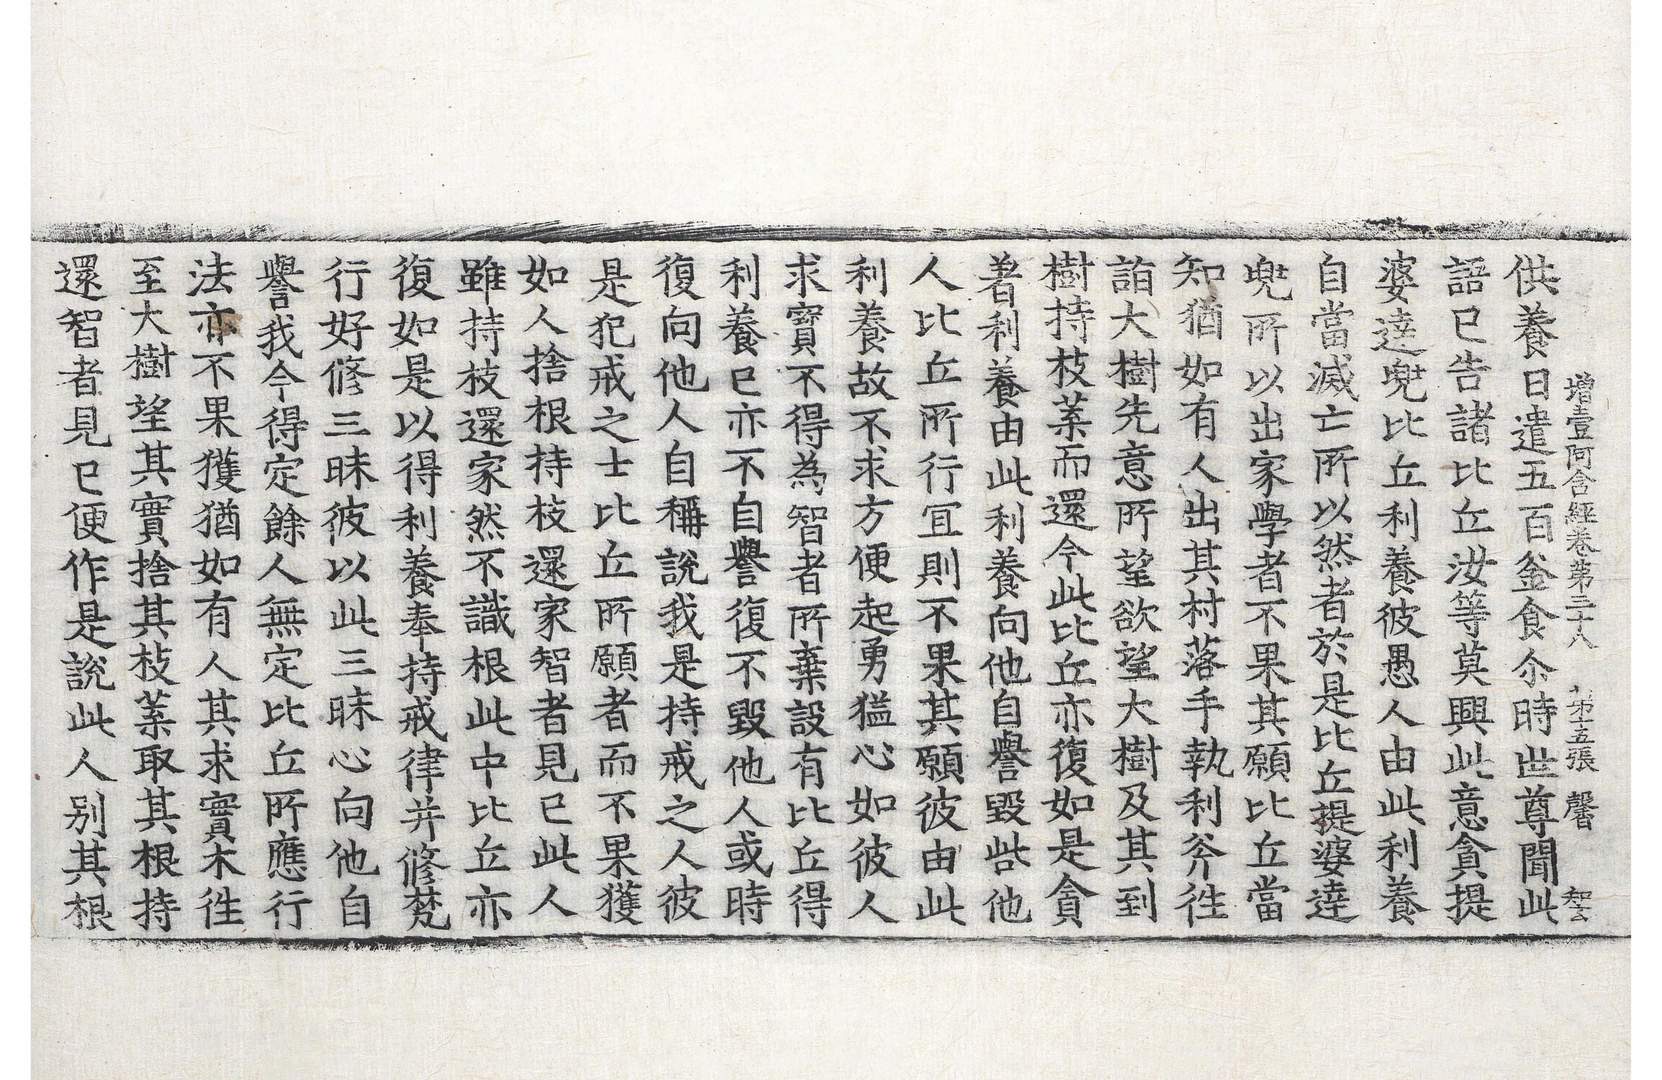 增壹阿含經卷第三十八 第十五張 馨 智云
供養日遣五百釜食尒時世尊聞此
語已告諸比丘汝等莫興此意貪提
婆達兜比丘利養彼愚人由此利養
自當滅亡所以然者於是比丘提婆達
兜所以出家學者不果其願比丘當
知猶如有人出其村落手執利斧往
詣大樹先意所望欲望大樹及其到
樹持枝葉而還今此比丘亦復如是貪
著利養由此利養向他自譽毀呰他
人比丘所行冝則不果其願彼由此
利養故不求方便起勇猛心如彼人
求寶不得為智者所棄設有比丘得
利養已亦不自譽復不毀他人或時
復向他人自稱說我是持戒之人彼
是犯戒之士比丘所願者而不果獲
如人捨根持枝還家智者見已此人
雖持枝還家然不識根此中比丘亦
復如是以得利養奉持戒律并修梵
行好修三昧彼以此三昧心向他自
譽我今得定餘人無定比丘所應行
法亦不果獲猶如有人其求實木往
至大樹望其實捨其枝葉取其根持
還智者見已便作是說此人別其根